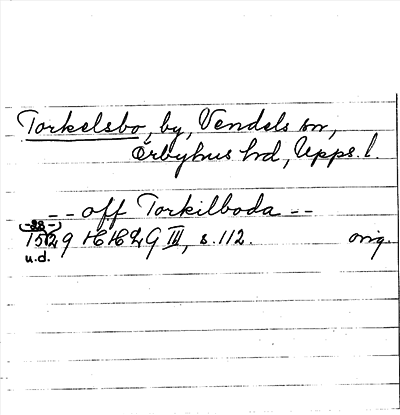 Torkelsbo, by, Vendels sn,
Örbyhus hd, Upps. l.
-- off Torkilboda --
(-28-)
1529 HH2G III, s. 112. orig.
u.d.